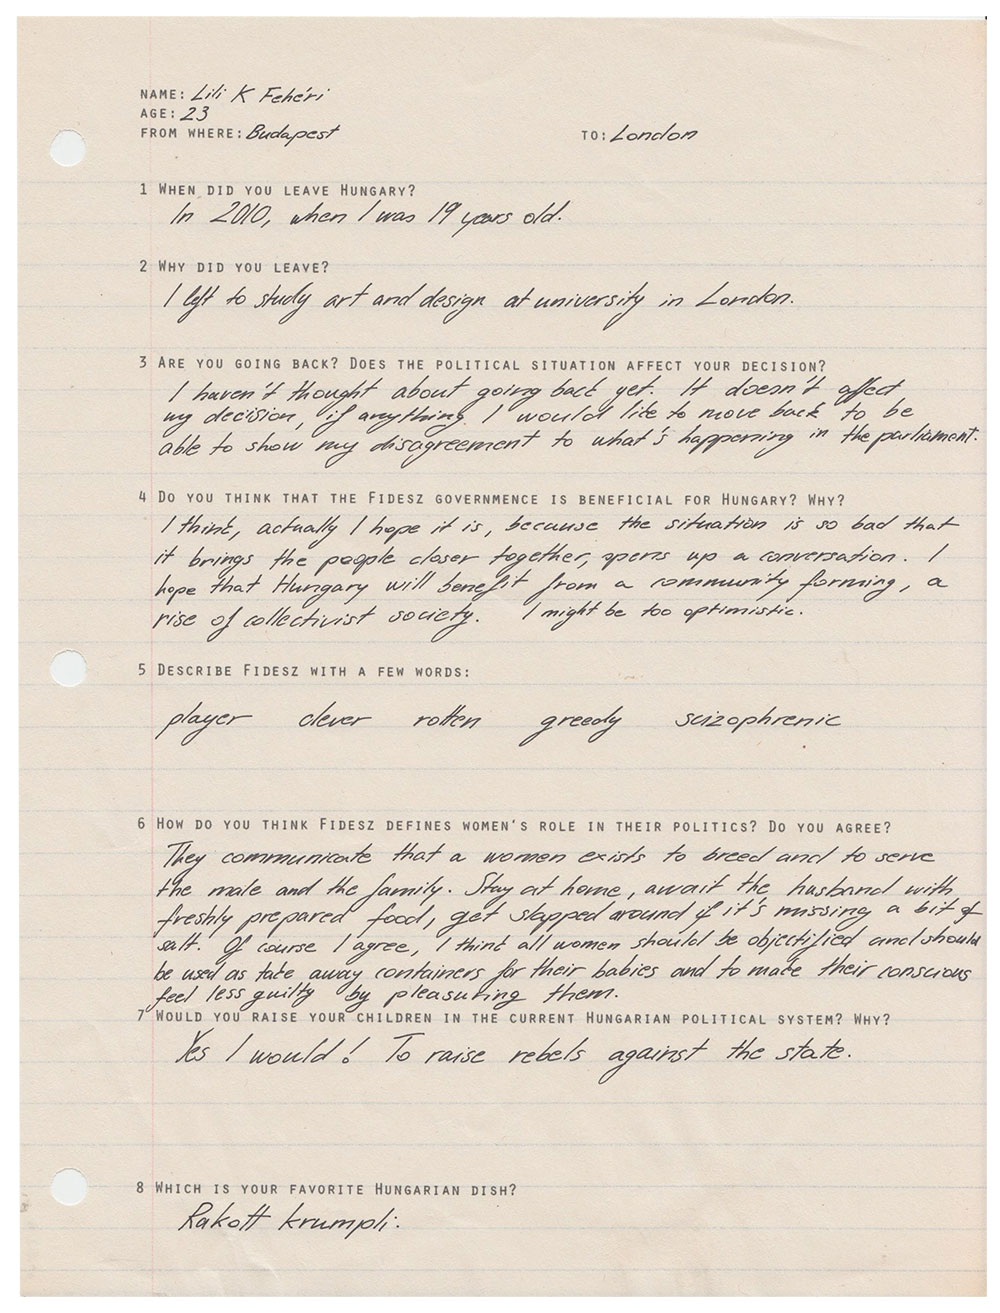 NAME: Lili K Fehéri
AGE: 23
FROM WHERE: Budapest TO: London
1 WHEN DID YOU LEAVE HUNGARY?
In 2010, when I was 19 years old.
2 WHY DID YOU LEAVE?
I left to study art and design at university in London.
3 ARE YOU GOING BACK? DOES THE POLITICAL SITUATION AFFECT YOUR DECISION?
I haven't thought about going back yet. It doesn't affect
my decision, if anything I would like to move back to be
able to show my disagreement to what's happening in the parliament.
4 DO YOU THINK THAT THE FIDESZ GOVERNMENCE IS BENEFICIAL FOR HUNGARY? WHY?
I think, actually I hope it is, because the situation is so bad that
it brings the people closer together, opens up a conversation. I
hope that Hungary will benefit from a community forming, a
rise of collectivist society. I might be too optimistic.
5 DESCRIBE FIDESZ WITH A FEW WORDS:
player clever rotten greedy scizophrenic
6 HOW DO YOU THINK FIDESZ DEFINES WOMEN'S ROLE IN THEIR POLITICS? DO YOU AGREE?
They communicate that a women exists to breed and to serve
the male and the family. Stay at home, await the husband with
freshly prepared food, get slapped around if it's missing a bit of
salt. Of course I agree, I think all women should be objectified and should
be used as take away containers for their babies and to make their conscious
feel less guilty by pleasuring them.
7 WOULD YOU RAISE YOUR CHILDREN IN THE CURRENT HUNGARIAN POLITICAL SYSTEM? WHY?
Yes I would! To raise rebels against the state.
8 WHICH IS YOUR FAVORITE HUNGARIAN DISH?
Rakott krumpli.